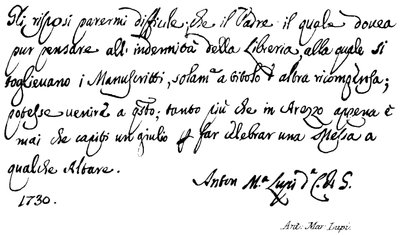 Gli risposi parermi difficile: che il Padre il quale dovea
pur pensare all' indennità della Libreria, alla quale si
toglievano i Manuscritti, solam.ᵉ a titolo d'altra ricompensa;
potesse venire a q.sto; tanto più che in Arezzo appena è
mai che capiti un giulio p far celebrar una Messa a
qualche Altare.
Anton M.ª Lupi d.ª C. di G.
1730.
Ant. Mar. Lupi.